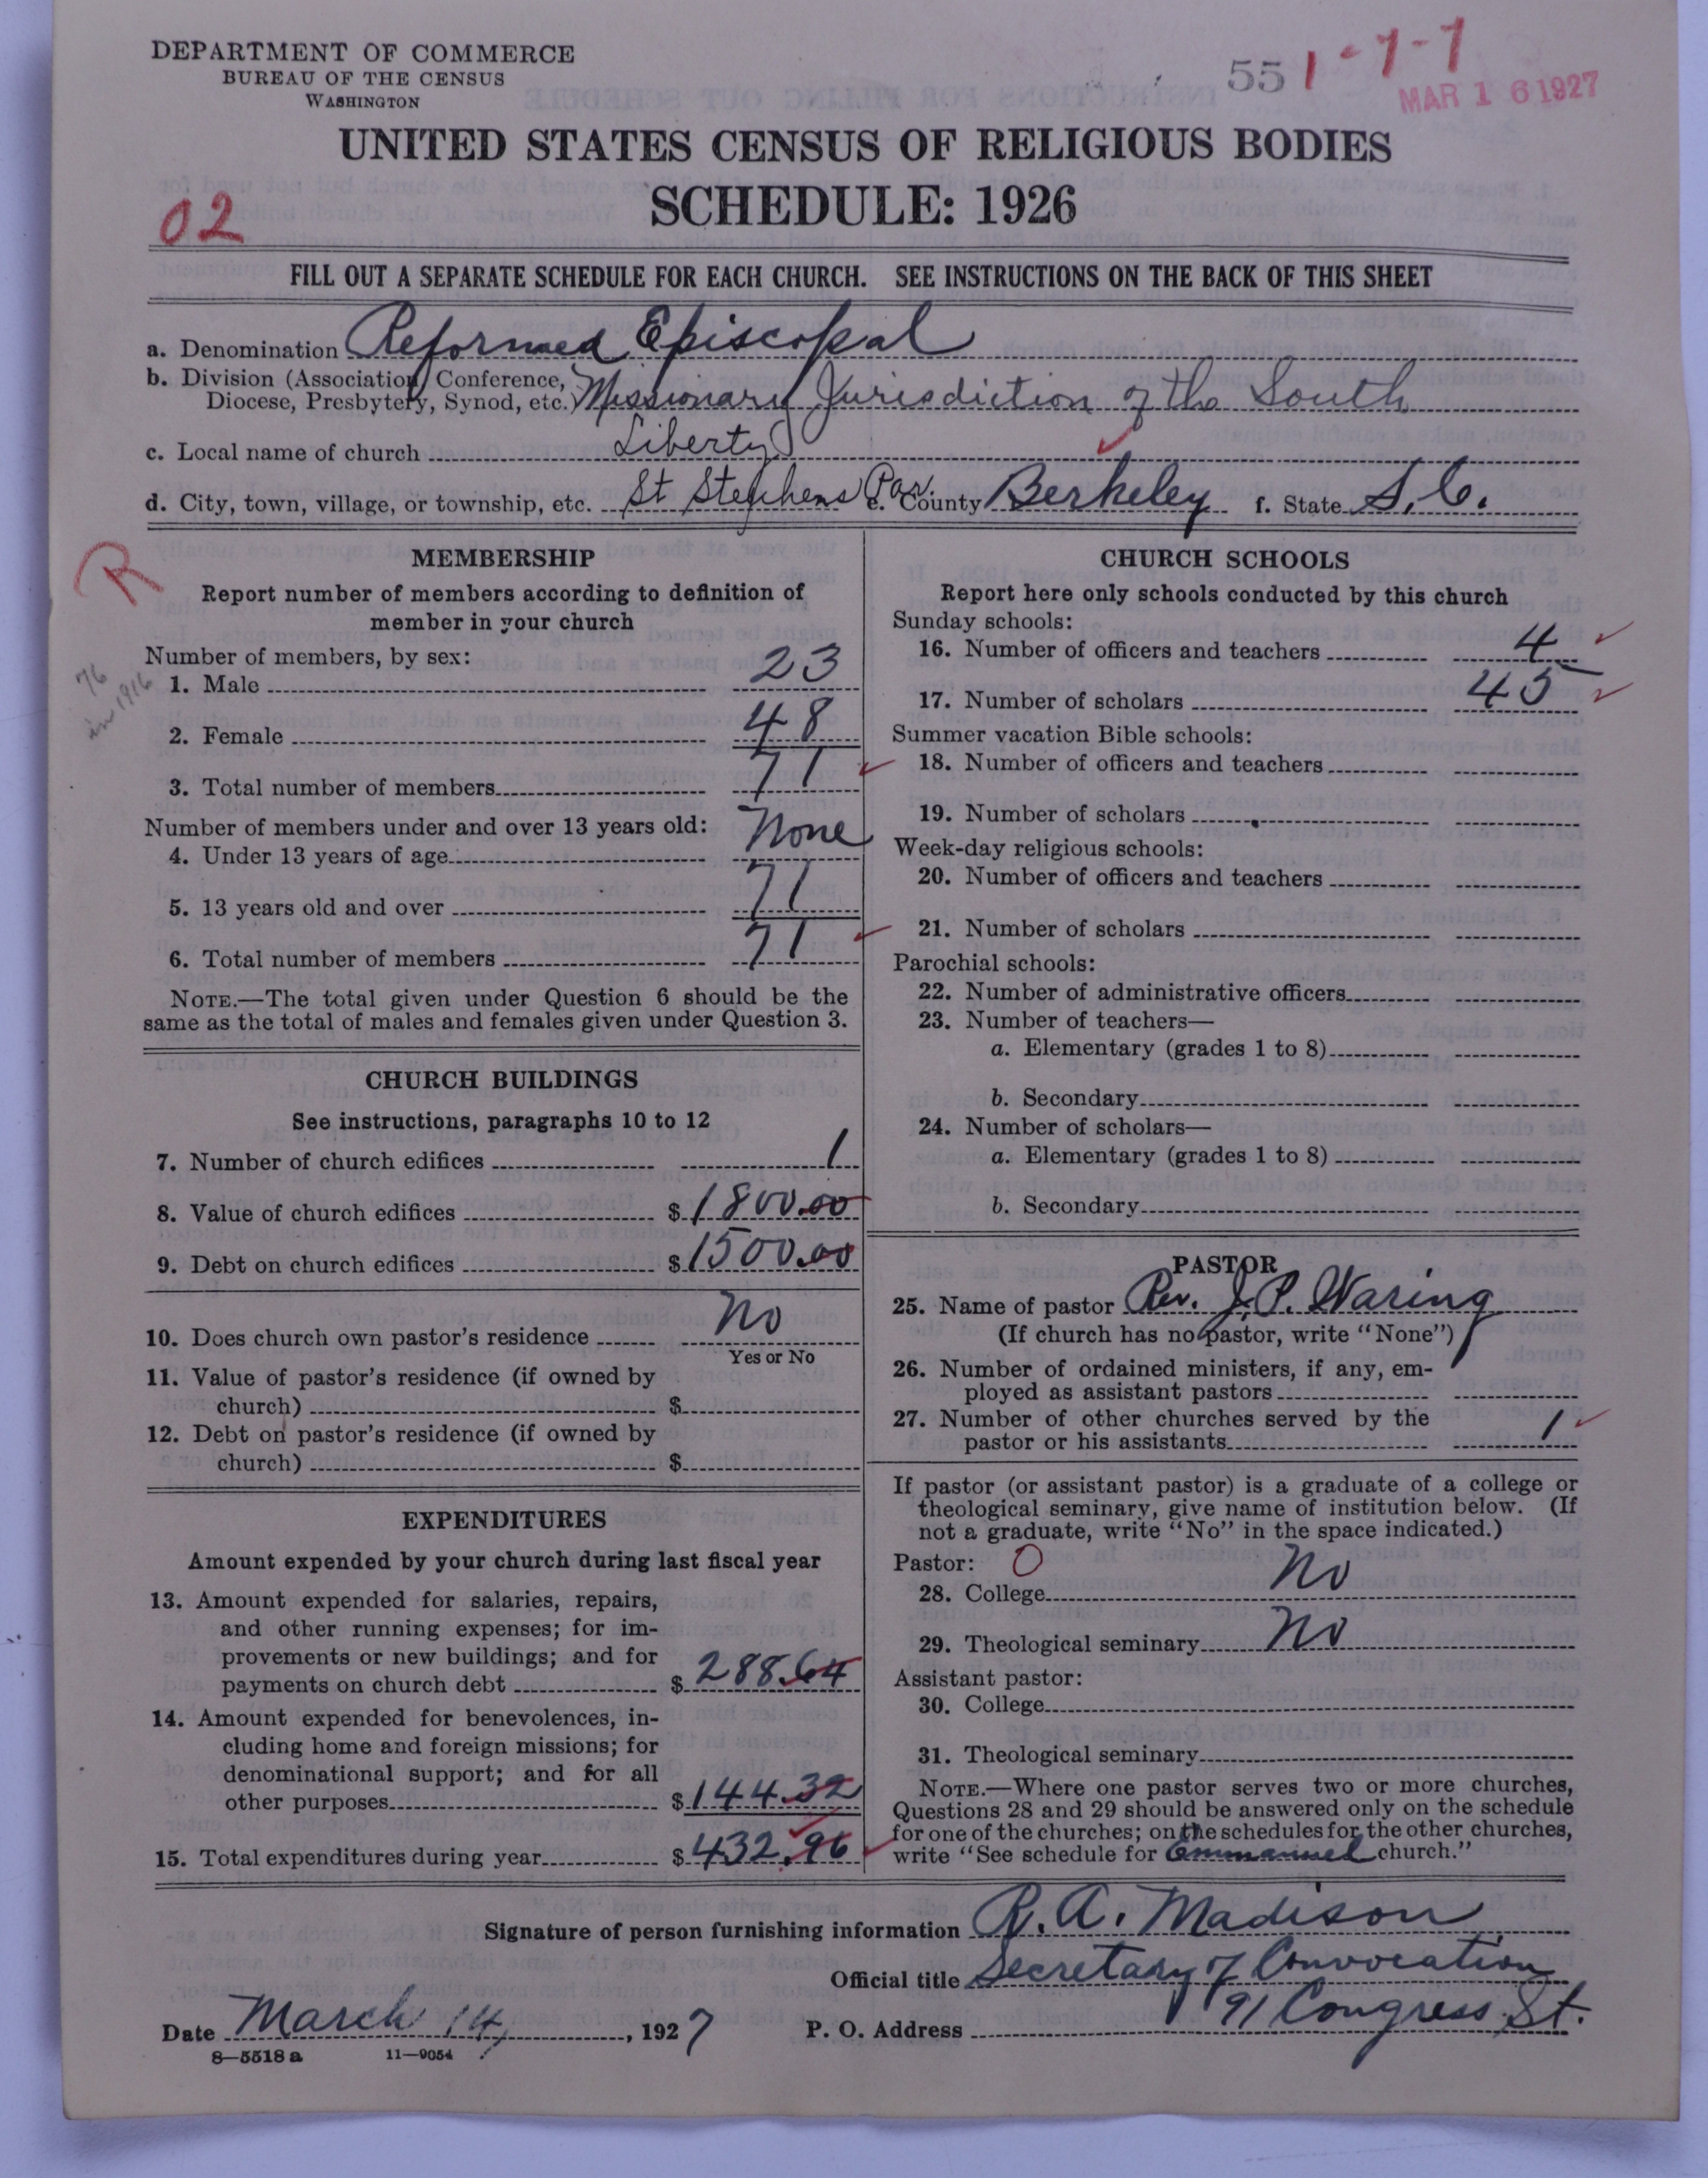 DEPARTMENT OF COMMERCE
BUREAU OF THE CENSUS
WASHINGTON
551-7-7
MAR 16 1927
UNITED STATES CENSUS OF RELIGIOUS BODIES
SCHEDULE: 1926
02
FILL OUT A SEPARATE SCHEDULE FOR EACH CHURCH. SEE INSTRUCTIONS ON THE BACK OF THIS SHEET
a. Denomination Reformed Episcopal
b. Division (Association, Conference, Diocese, Presbytery, Synod, etc.) Missionary Jurisdiction of the South
c. Local name of church Liberty
d. City, town, village, or township, etc. St Stephens Par. e. County Berkeley f. State S.C.
R
76 in 1916
MEMBERSHIP
Report number of members according to definition of
member in your church
Number of members, by sex:
1. Male 23
2. Female 48
3. Total number of members 71
Number of members under and over 13 years old:
4. Under 13 years of age None
5. 13 years old and over 71
6. Total number of members 71
NOTE.—The total given under Question 6 should be the
same as the total of males and females given under Question 3.
CHURCH BUILDINGS
See instructions, paragraphs 10 to 12
7. Number of church edifices 1
8. Value of church edifices $ 1800.00
9. Debt on church edifices $ 1500.00
10. Does church own pastor's residence No
Yes or No
11. Value of pastor's residence (if owned by
church) $
12. Debt on pastor's residence (if owned by
church) $
EXPENDITURES
Amount expended by your church during last fiscal year
13. Amount expended for salaries, repairs,
and other running expenses; for im-
provements or new buildings; and for
payments on church debt $ 288.64
14. Amount expended for benevolences, in-
cluding home and foreign missions; for
denominational support; and for all
other purposes $ 144.32
15. Total expenditures during year $ 432.96
CHURCH SCHOOLS
Report here only schools conducted by this church
Sunday schools:
16. Number of officers and teachers 4
17. Number of scholars 45
Summer vacation Bible schools:
18. Number of officers and teachers
19. Number of scholars
Week-day religious schools:
20. Number of officers and teachers
21. Number of scholars
Parochial schools:
22. Number of administrative officers
23. Number of teachers—
a. Elementary (grades 1 to 8)
b. Secondary
24. Number of scholars—
a. Elementary (grades 1 to 8)
b. Secondary
PASTOR
25. Name of pastor Rev. J. P. Waring
(If church has no pastor, write "None")
26. Number of ordained ministers, if any, em-
ployed as assistant pastors
27. Number of other churches served by the
pastor or his assistants 1
If pastor (or assistant pastor) is a graduate of a college or
theological seminary, give name of institution below. (If
not a graduate, write "No" in the space indicated.)
Pastor: 0
28. College No
29. Theological seminary No
Assistant pastor:
30. College
31. Theological seminary
NOTE.—Where one pastor serves two or more churches,
Questions 28 and 29 should be answered only on the schedule
for one of the churches; on the schedules for the other churches,
write "See schedule for Emmanuel church."
Signature of person furnishing information R. A. Madison
Official title Secretary of Convocation
Date March 14, 1927 P. O. Address 91 Congress St.
8—5518 a 11—9054